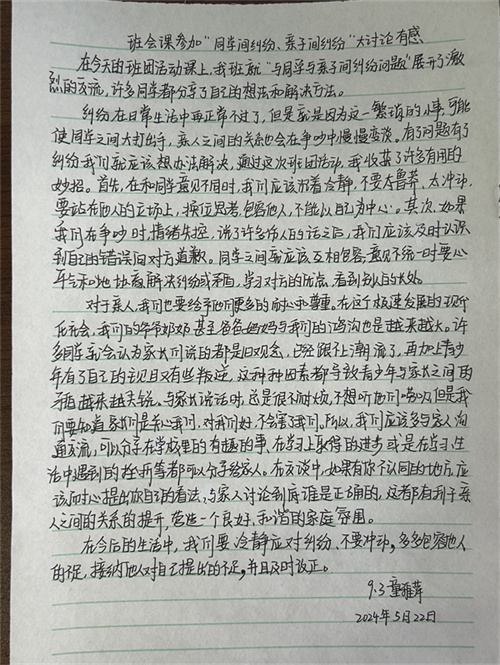 班会课参加“同学间纠纷、亲子间纠纷”大讨论有感
在今天的班团活动课上，我班就“与同学与亲子间纠纷问题”展开了激
烈的交流，许多同学都分享了自己的想法和解决方法。
纠纷在日常生活中再正常不过了，但是就是因为这一繁琐的小事，可能
使同学之间大打出手，亲人之间的关系也会在争吵中慢慢变淡。有了问题有了
纠纷我们就应该想办法解决，通过这次班团活动，我收获了许多有用的
妙招。首先，在和同学意见不同时，我们应该沉着冷静，不要太鲁莽、太冲动，
要站在他人的立场上，换位思考，包容他人，不能以自己为中心。其次，如果
我们在争吵时，情绪失控，说了许多伤人的话之后，我们应该及时认识
到自己的错误向对方道歉。同学之间就应该互相包容，意见不统一时要心
平气和地协商解决纠纷或矛盾，学习对方的优点，看到别人的长处。
对于亲人，我们也要给予他们更多的耐心和尊重。在这个极速发展的现代
化社会，我们的爷爷奶奶甚至爸爸妈妈与我们的鸿沟也是越来越大。许
多同学就会认为家长们说的都是旧观念，已经跟不上潮流了，再加上青少
年有了自己的主观且又有些叛逆，这种种因素都导致青少年与家长之间的
矛盾越来越尖锐。与家长说话时，总是很不耐烦，不想听他们唠叨。但是我们
要知道家长们是关心我们，对我们好，不会害了我们。所以，我们应该多与家人沟
通交流，可以分享在学校里的有趣的事、在学习上取得的进步或是在学习、生
活中遇到的挫折等都可以分享给家人。在交谈中，如果有你不认同的地方，应
该耐心提出你自己的看法，与家人讨论到底谁是正确的，这都有利于亲
人之间的关系的提升，营造一个良好、和谐的家庭氛围。
在今后的生活中，我们要冷静应对纠纷、不要冲动，多多包容他人
的不足，接纳他人对自己提出的不足，并且及时改正。
9.3 董雅萍
2024年5月22日